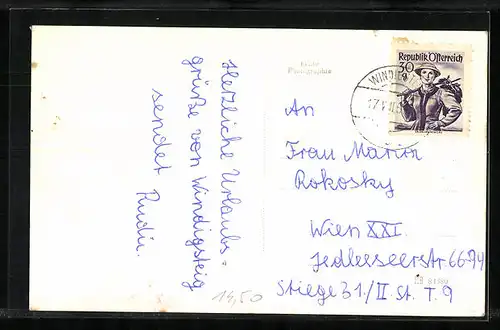 Herzliche Urlaubs-
grüße von Windigsteig
sendet
Rudi.
Echte
Photographie
Republik Österreich
30
WINDIG
17.
An
Frau Maria
Rokosky
Wien XXI.
Jedleseerstr. 66-94
Stiege 31/II. St. T. 9
81880
14,50